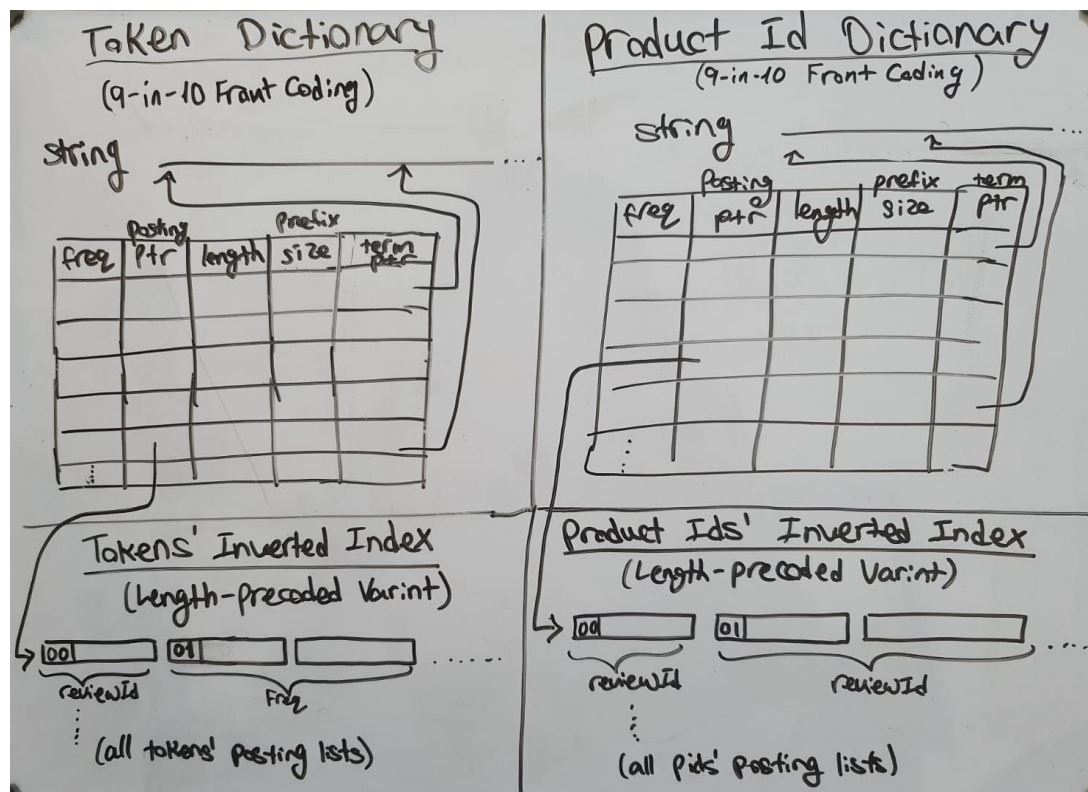 Token Dictionary
(9-in-10 Front Coding)
string
....
freq
posting ptr
length
prefix size
term ptr
......
Tokens' Inverted Index
(Length-precoded Varint)
00
01
.......
reviewId
Freq
.....
(all tokens' posting lists)
Product Id Dictionary
(9-in-10 Front Coding)
string
...
freq
Posting ptr
length
prefix size
term ptr
....
Product Ids' Inverted Index
(Length-precoded Varint)
00
01
....
reviewId
reviewId
.....
(all pids' posting lists)